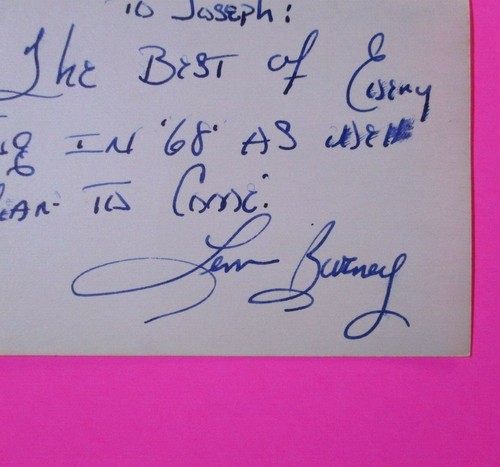 To Joseph:
The Best of Every
IN '68' AS well
To Come:
Lem Barney